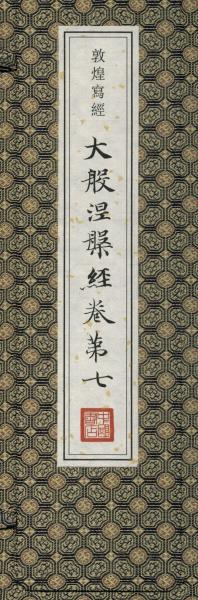 敦煌寫經
大般涅槃經卷第七